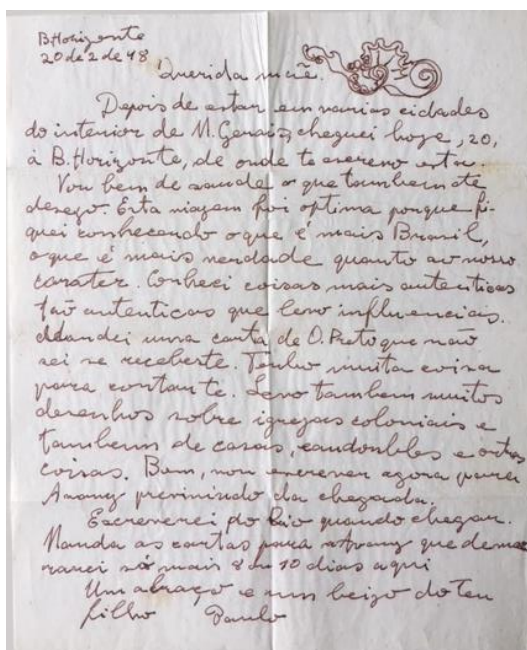 B.Horizonte
20 de 2 de 48
Querida mãe.
Depois de estar em varias cidades
do interior de M. Gerais, cheguei hoje, 20,
à B. Horizonte, de onde te escrevo esta.
Vou bem de saude o que tambem te
desejo. Esta viagem foi optima porque fi-
quei conhecendo o que é mais Brasil,
o que é mais verdade quanto ao nosso
carater. Conheci coisas mais autenticas
tão autenticas que levo influencias.
Mandei uma carta de O. Preto que não
sei se recebeste. Tenho muita coisa
para contar-te. Levo tambem muitos
desenhos sobre igrejas coloniais e
tambem de casas, e outras
coisas. Bom, vou escrever agora para
prevenindo da chegada.
Escreverei do Rio quando chegar.
Manda as cartas para que demo
rarei só mais 8 ou 10 dias aqui
Um abraço e um beijo do teu
filho Paulo